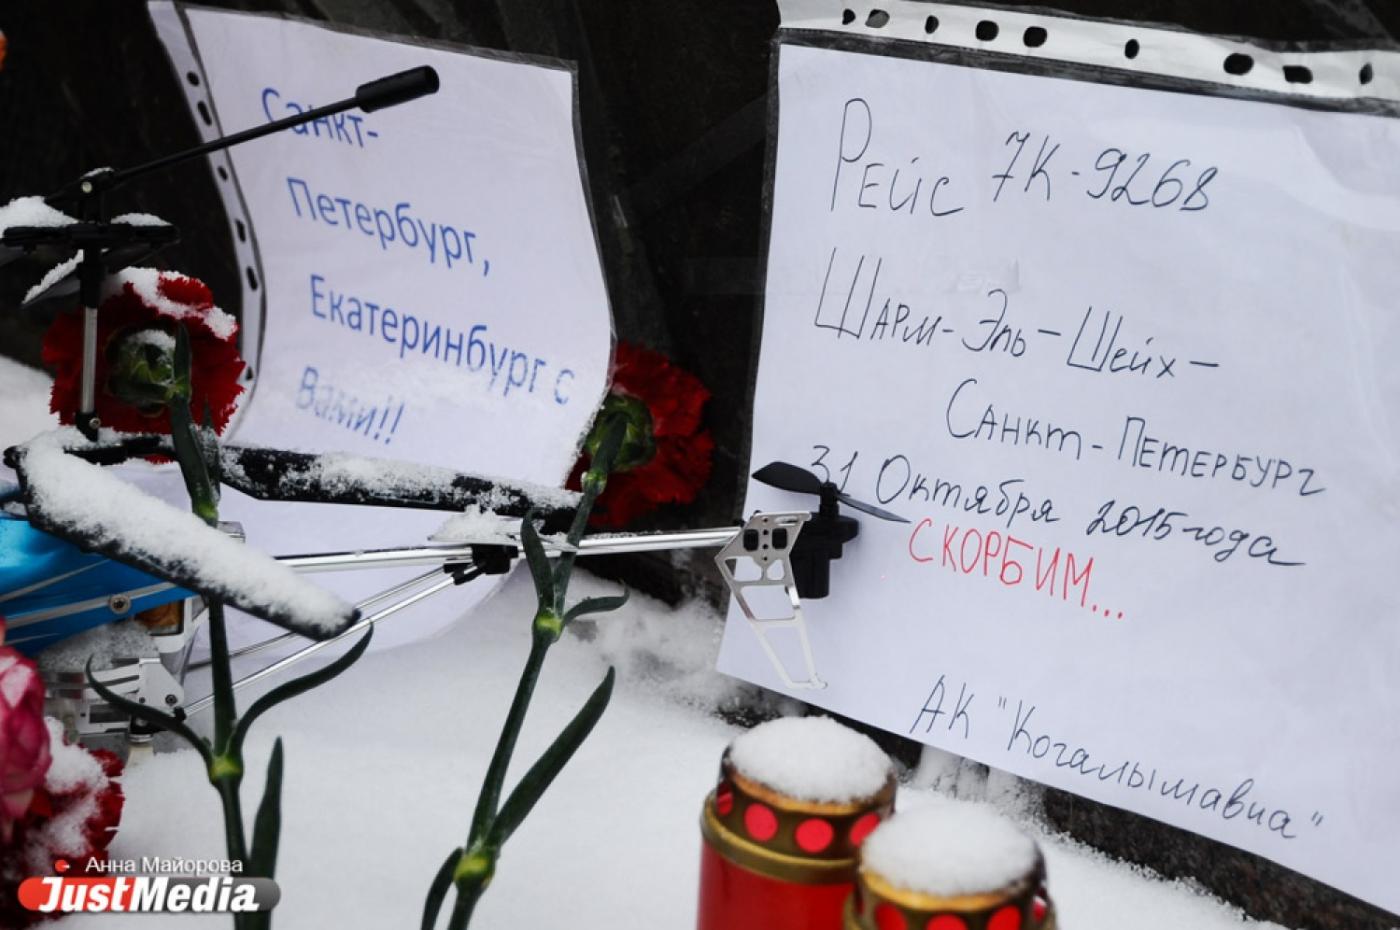 Санкт-
Петербург,
Екатеринбург с
Вами!!
Рейс 7К-9268
Шарм-Эль-Шейх-
Санкт-Петербург
31 Октября 2015 года
СКОРБИМ...
АК "Когалымавиа"
Анна Майорова
JustMedia